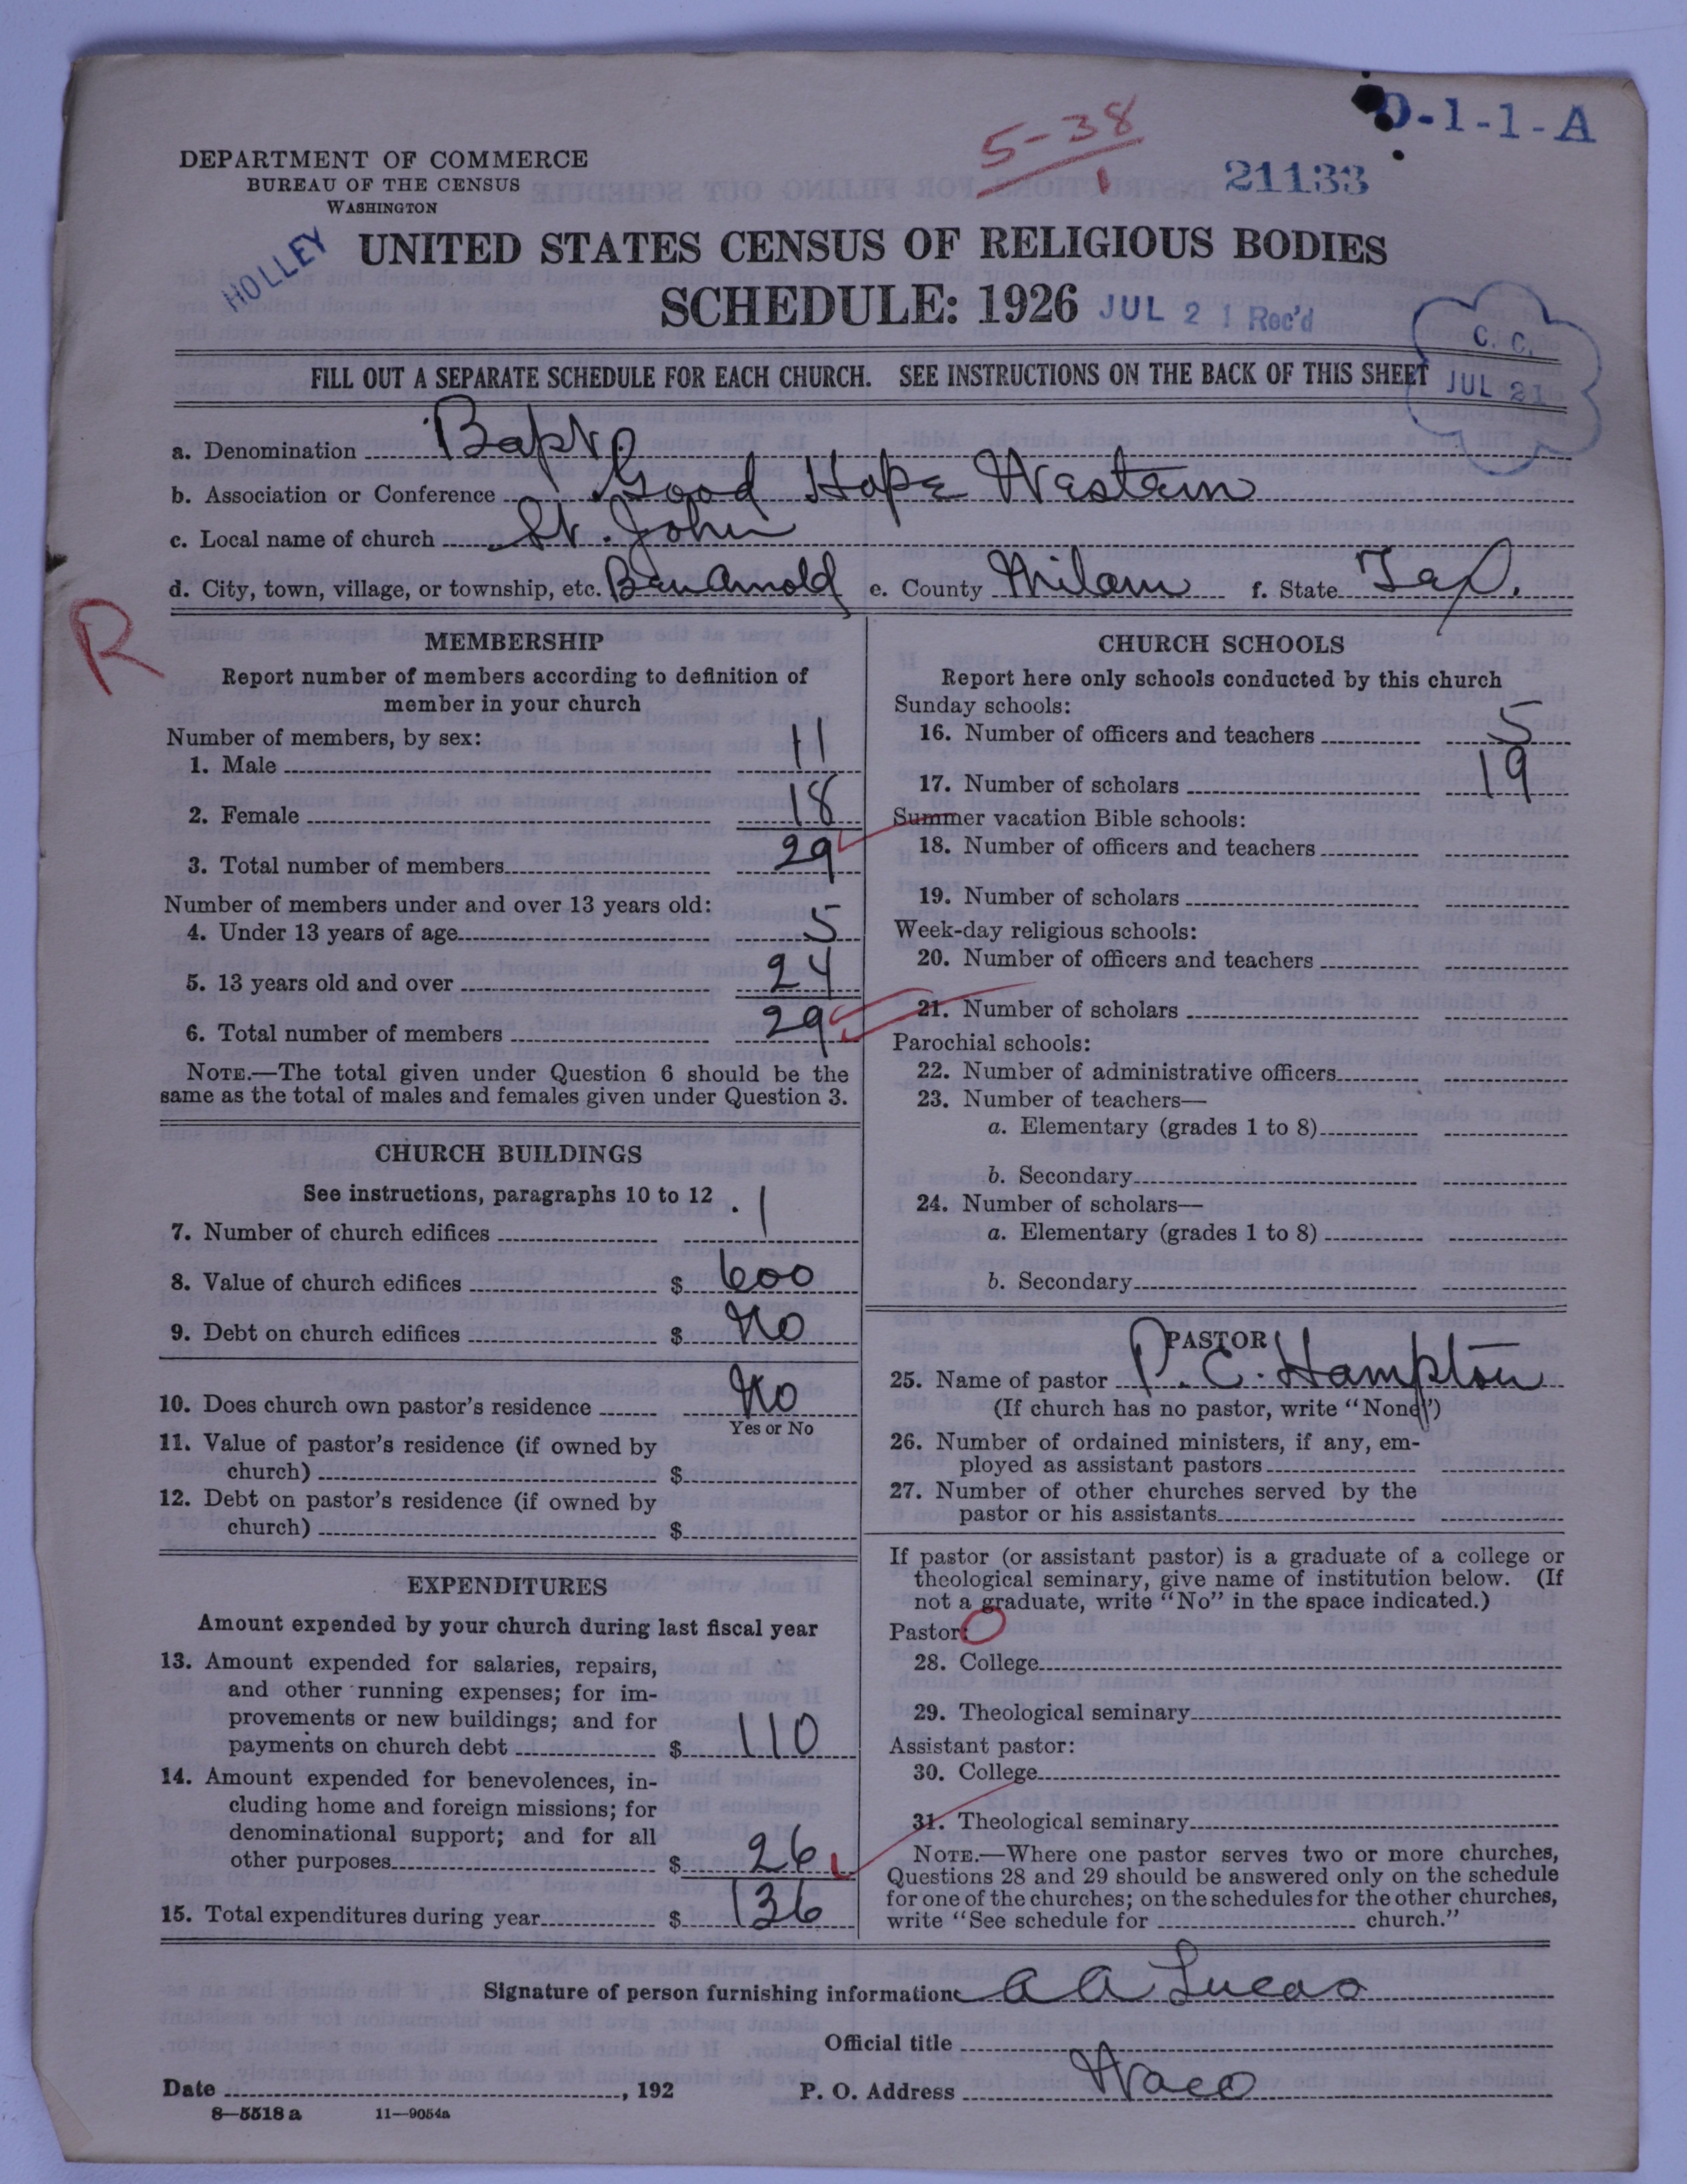 5-38
1
D-1-1-A
21133
DEPARTMENT OF COMMERCE
BUREAU OF THE CENSUS
WASHINGTON
HOLLEY
UNITED STATES CENSUS OF RELIGIOUS BODIES
SCHEDULE: 1926
JUL 21 Rec'd
C. C.
JUL 21
FILL OUT A SEPARATE SCHEDULE FOR EACH CHURCH. SEE INSTRUCTIONS ON THE BACK OF THIS SHEET
a. Denomination Bapt.
b. Association or Conference Good Hope Western
c. Local name of church St. John
d. City, town, village, or township, etc. Ben Arnold e. County Milam f. State Tex.
R
MEMBERSHIP
Report number of members according to definition of
member in your church
Number of members, by sex:
1. Male 11
2. Female 18
3. Total number of members 29
Number of members under and over 13 years old:
4. Under 13 years of age 5
5. 13 years old and over 24
6. Total number of members 29
NOTE.—The total given under Question 6 should be the
same as the total of males and females given under Question 3.
CHURCH BUILDINGS
See instructions, paragraphs 10 to 12
7. Number of church edifices 1
8. Value of church edifices $ 600
9. Debt on church edifices $ No
10. Does church own pastor's residence No
Yes or No
11. Value of pastor's residence (if owned by
church) $
12. Debt on pastor's residence (if owned by
church) $
EXPENDITURES
Amount expended by your church during last fiscal year
13. Amount expended for salaries, repairs,
and other running expenses; for im-
provements or new buildings; and for
payments on church debt $ 110
14. Amount expended for benevolences, in-
cluding home and foreign missions; for
denominational support; and for all
other purposes $ 26
15. Total expenditures during year $ 136
CHURCH SCHOOLS
Report here only schools conducted by this church
Sunday schools:
16. Number of officers and teachers 5
17. Number of scholars 19
Summer vacation Bible schools:
18. Number of officers and teachers
19. Number of scholars
Week-day religious schools:
20. Number of officers and teachers
21. Number of scholars
Parochial schools:
22. Number of administrative officers
23. Number of teachers—
a. Elementary (grades 1 to 8)
b. Secondary
24. Number of scholars—
a. Elementary (grades 1 to 8)
b. Secondary
PASTOR
25. Name of pastor P. C. Hampton
(If church has no pastor, write "None")
26. Number of ordained ministers, if any, em-
ployed as assistant pastors
27. Number of other churches served by the
pastor or his assistants
If pastor (or assistant pastor) is a graduate of a college or
theological seminary, give name of institution below. (If
not a graduate, write "No" in the space indicated.)
Pastor:
28. College
29. Theological seminary
Assistant pastor:
30. College
31. Theological seminary
NOTE.—Where one pastor serves two or more churches,
Questions 28 and 29 should be answered only on the schedule
for one of the churches; on the schedules for the other churches,
write "See schedule for church."
Signature of person furnishing information A A Lucas
Official title
Date , 192 P. O. Address Waco
8—5518 a 11—9054a